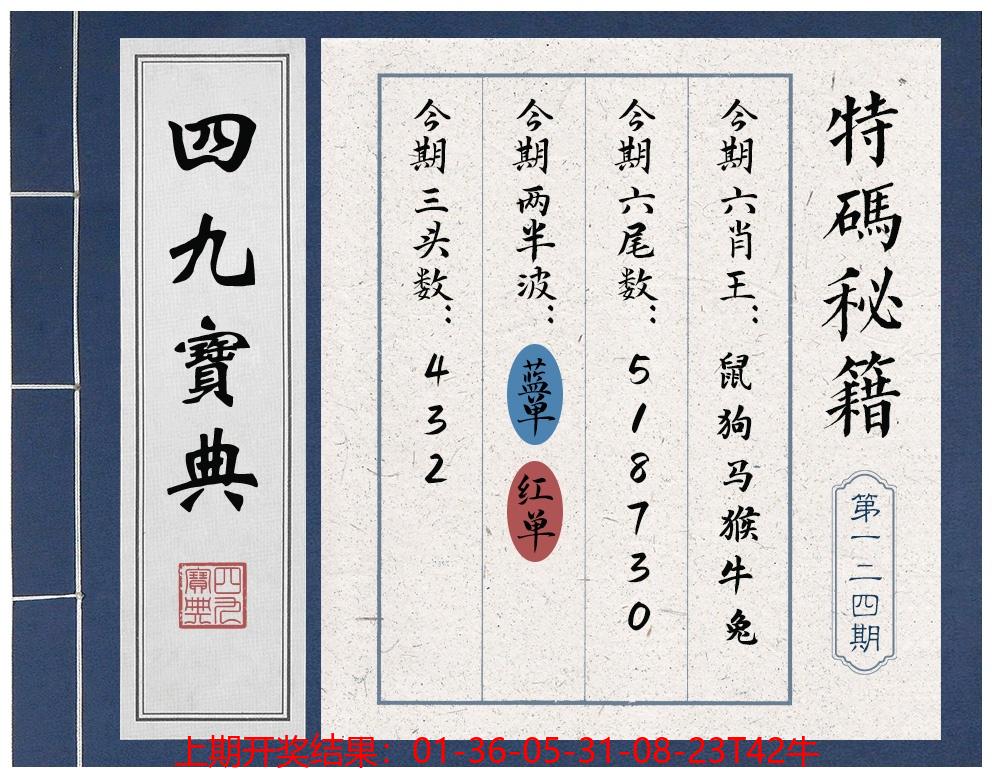 特碼秘籍
第一二四期
今期六肖王：鼠狗马猴牛兔
今期六尾数：518730
今期两半波：蓝单 红单
今期三头数：432
四九寶典
四九寶典
上期开奖结果：01-36-05-31-08-23T42牛